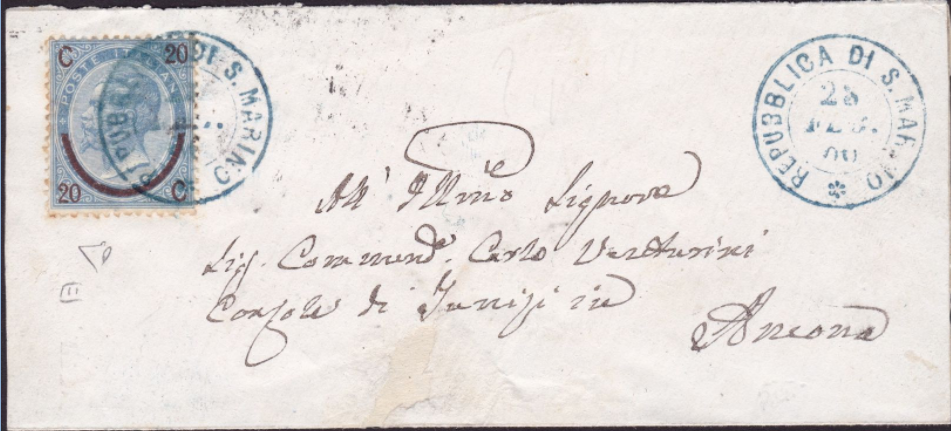 C 20
POSTE ITALIANE
20 C
REPUBBLICA DI S. MARINO
REPUBBLICA DI S. MARINO
28
FEB.
All' Illmo Signore
Sig. Commend. Carlo Venturini
Console di Tunisi in
Ancona